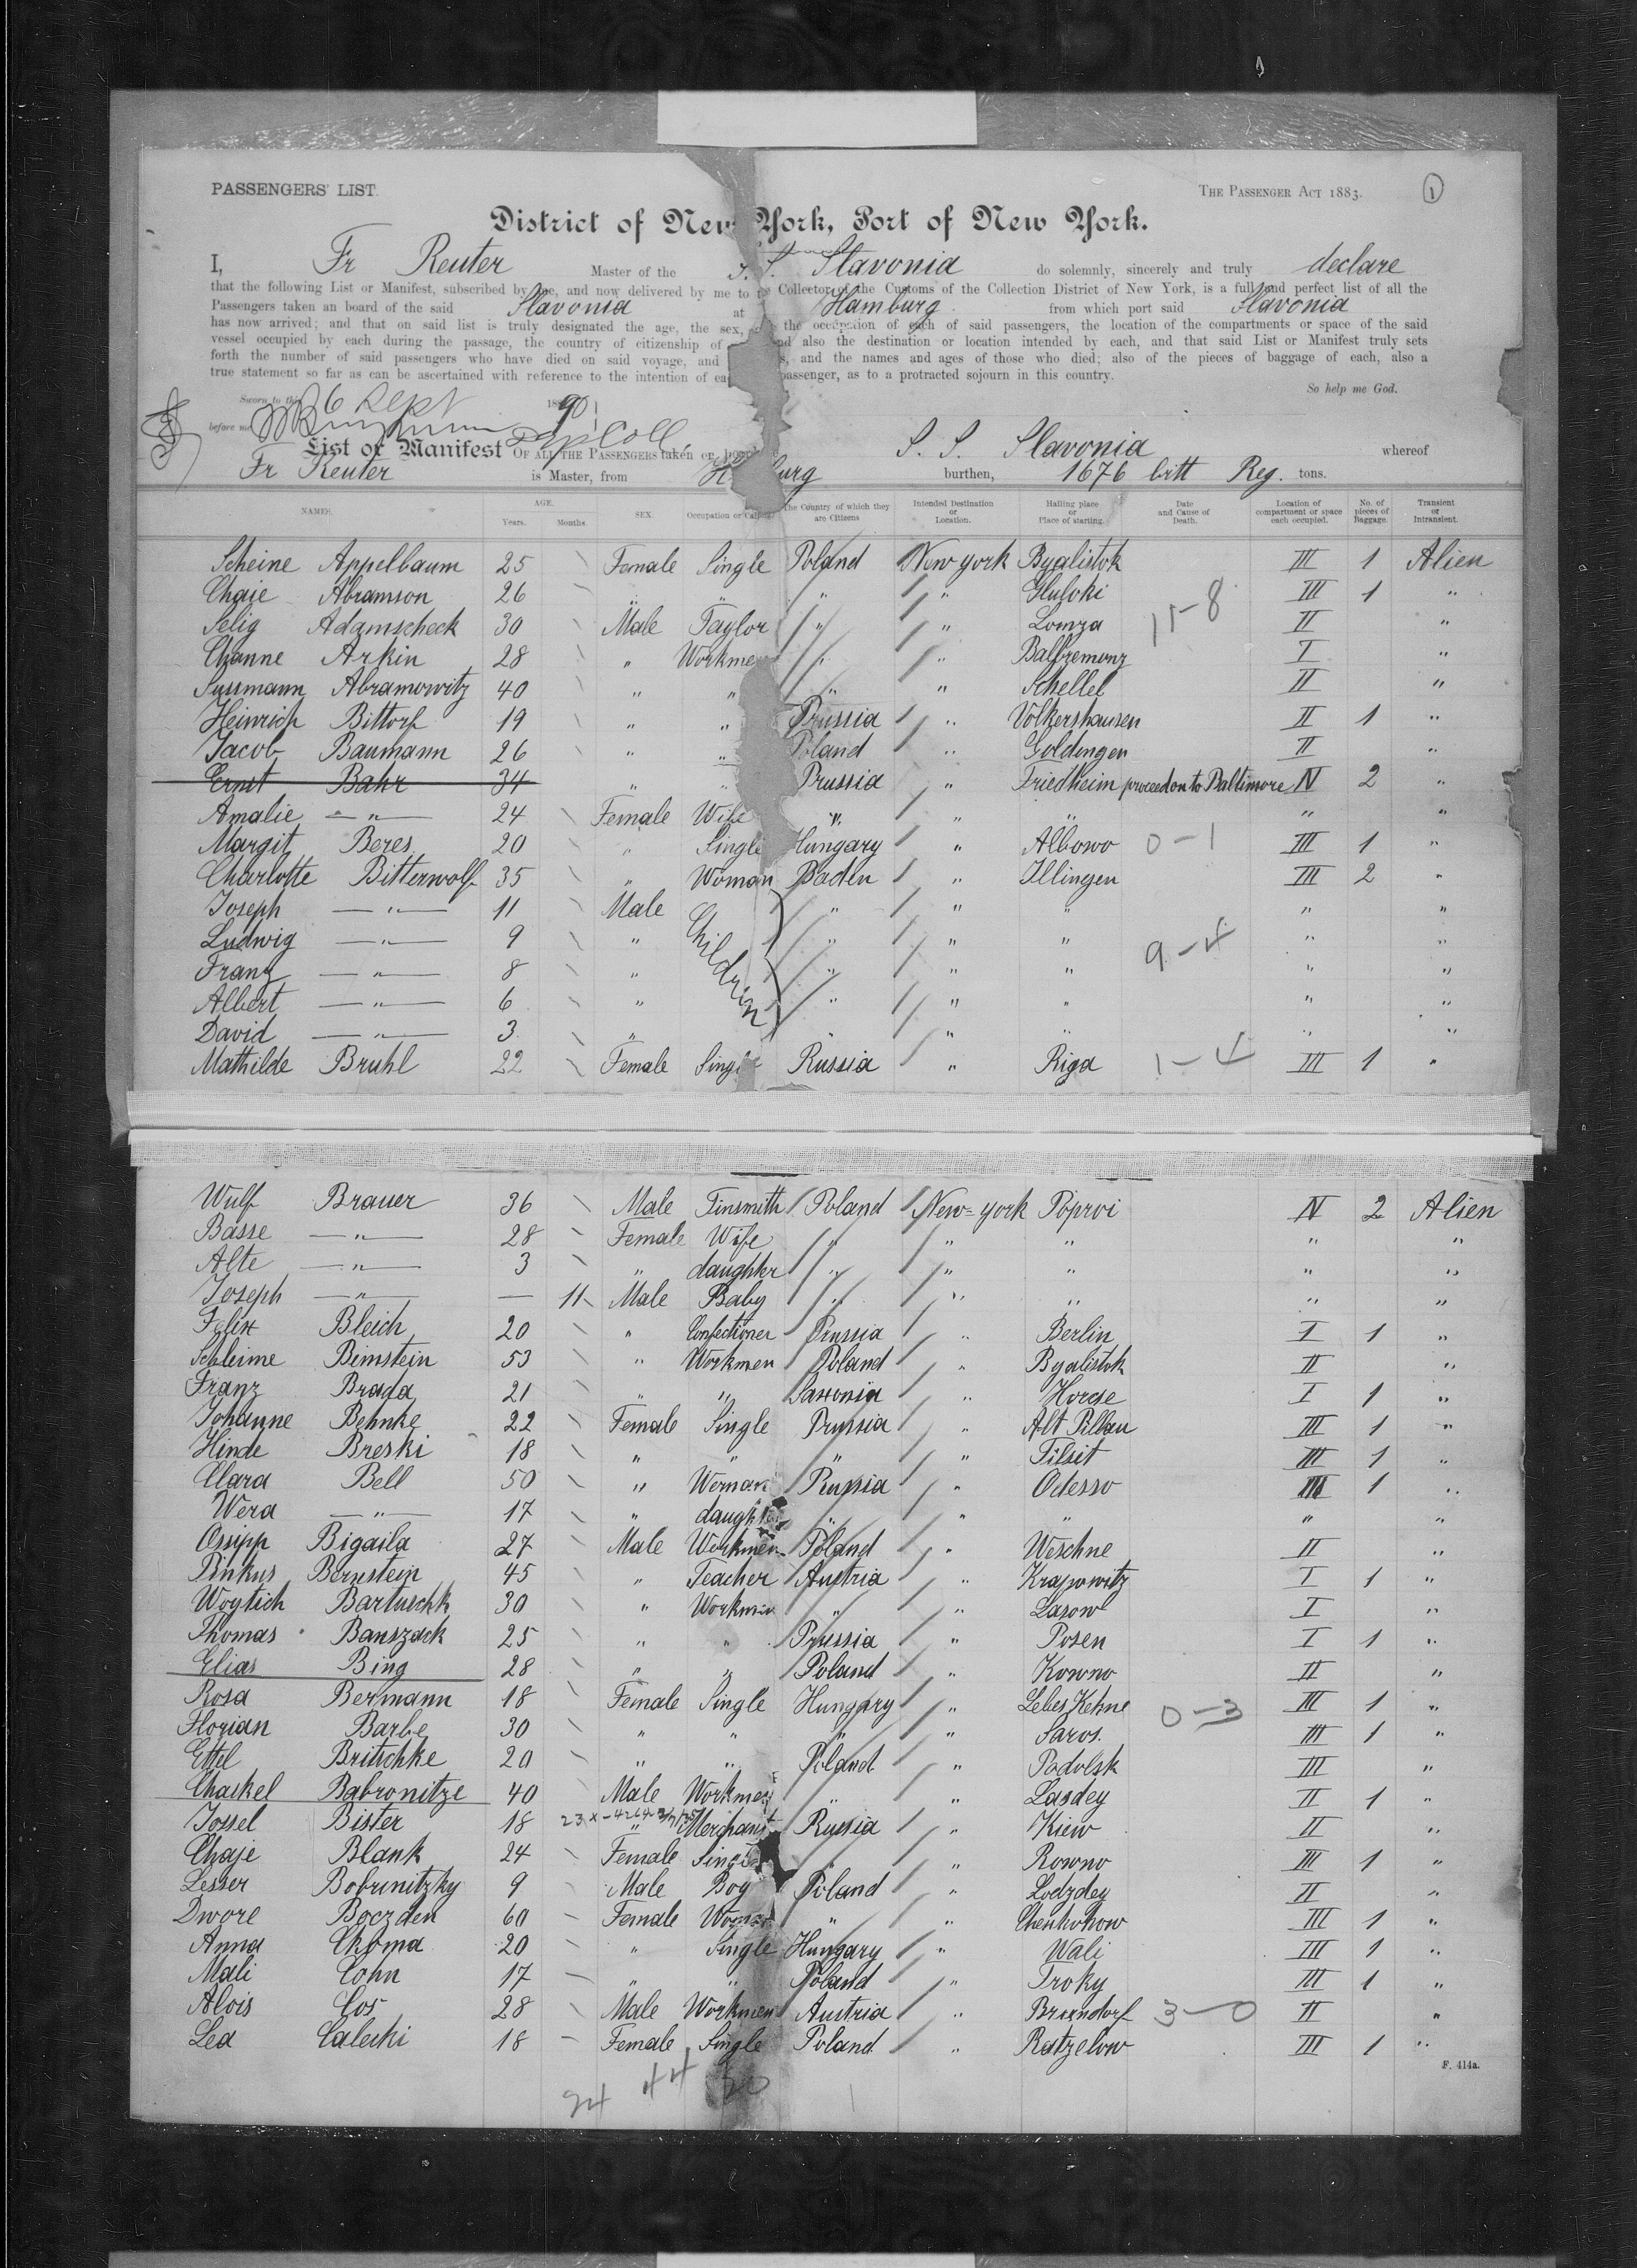 PASSENGERS' LIST. THE PASSENGER ACT 1883. 1
District of New York, Port of New York.
I, Fr Reuter Master of the S. S. Slavonia do solemnly, sincerely and truly declare
that the following List or Manifest, subscribed by me, and now delivered by me to the Collector of the Customs of the Collection District of New York, is a full and perfect list of all the
Passengers taken an board of the said Slavonia at Hamburg from which port said Slavonia
has now arrived; and that on said list is truly designated the age, the sex, the occupation of each of said passengers, the location of the compartments or space of the said
vessel occupied by each during the passage, the country of citizenship of and also the destination or location intended by each, and that said List or Manifest truly sets
forth the number of said passengers who have died on said voyage, and and the names and ages of those who died; also of the pieces of baggage of each, also a
true statement so far as can be ascertained with reference to the intention of each passenger, as to a protracted sojourn in this country.
So help me God.
Sworn to this 6 Sept 1890
before me Dep Coll.
List or Manifest OF ALL THE PASSENGERS taken on board S. S. Slavonia whereof
Fr Reuter is Master, from Hamburg burthen, 1676 britt Reg. tons.
NAMES. AGE. Years. Months. SEX. Occupation or Calling The Country of which they are Citizens Intended Destination or Location. Hailing place or Place of starting. Date and Cause of Death. Location of compartment or space each occupied. No. of pieces of Baggage. Transient or Intransient.
Scheine Appelbaum 25 Female Single Poland New York Byalistok III 1 Alien
Chaie Abramson 26 " " " " Gluloki III 1 "
Selig Adamscheck 30 Male Taylor " " Lomza 11-8 II "
Channe Arkin 28 " Workmen " " Balbzemonz I "
Sussmann Abramowitz 40 " " " " Schellel II "
Heinrich Bittorf 19 " " Prussia " Volkershausen II 1 "
Jacob Baumann 26 " " Poland " Goldingen II "
Ernst Bahr 34 " " Prussia " Friedheim proceed on to Baltimore IV 2 "
Amalie " 24 Female Wife " " " " "
Margit Beres 20 " Single Hungary " Albowo 0-1 III 1 "
Charlotte Bitterwolf 35 " Woman Baden " Illingen III 2 "
Joseph " 11 Male Children " " " " "
Ludwig " 9 " " " " 9-4 " "
Franz " 8 " " " " " "
Albert " 6 " " " " " "
David " 3 " " " " " "
Mathilde Bruhl 22 Female Single Russia " Riga 1-4 III 1 "
Wulf Brauer 36 Male Tinsmith Poland New-york Poproi IV 2 Alien
Basse " 28 Female Wife " " " " "
Alte " 3 " daughter " " " " "
Joseph " — 11 Male Baby " " " " "
Felix Bleich 20 " Confectioner Prussia " Berlin I 1 "
Schleime Bimstein 53 " Workmen Poland " Byalistok II "
Franz Brada 21 " " Saxonia " Horcse I 1 "
Johanne Behnke 22 Female Single Prussia " Alt Pillau III 1 "
Hinde Breski 18 " " " " Tilsit III 1 "
Clara Bell 50 " Woman Russia " Odesso III 1 "
Wera " 17 " daughter " " " " "
Ossipp Bigaila 27 Male Workmen Poland " Weschne II "
Pinkus Bernstein 45 " Teacher Austria " Krapowitz I 1 "
Woytich Bartuschk 30 " Workmen " " Lasow I "
Thomas Banszack 25 " " Prussia " Posen I 1 "
Elias Bing 28 " " Poland " Kowno II "
Rosa Bermann 18 Female Single Hungary " Lebes Kehne 0-3 III 1 "
Florian Barbe 30 " " " " Saros. III 1 "
Ettel Britschke 20 " " Poland " Podolsk III "
Chaskel Babronitze 40 Male Workmen " " Lasdey II 1 "
Jossel Bister 18 " Merchant Russia " Kiew II "
Chaje Blank 24 Female Single " " Rowno III 1 "
Lesser Bobrunitzky 9 Male Boy Poland " Lodzdey II "
Dwore Boczden 60 Female Woman " " Chenhokow III 1 "
Anna Choma 20 " Single Hungary " Wali III 1 "
Mali Cohn 17 " " Poland " Troky III 1 "
Alois Cos 28 Male Workmen Austria " Brundorf 3-0 II "
Lea Calecki 18 Female Single Poland " Ratzelow III 1 "
F. 414a.
24 44 20